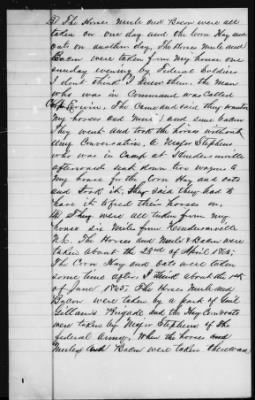 3) The Horses Mule and Bacon were all
taken on one day and the Corn Hay and
oats on another day, The Horses Mule and
Bacon were taken from my house one
Sunday evening by Federal Soldiers
I dont think I knew them, the man
who was in Command was called
Capt They Came and said they wanted
my horses and Mule and some bacon
They went and took the horses without
any Conversation, A Major Stephens
who was in Camp at Hendersonville
afterwards sent down two wagons to
my house for the Corn Hay and oats
and took it, They said they had to
have it to feed their horses on.
4) They were all taken from my
house six Miles from Hendersonville
N.C. The Horses and Mule & Bacon were
taken about the 23rd of April 1865.
The Corn Hay and oats were taken
some time after, I think about the 1st
of June 1865. The Horses Mule and
Bacon were taken by a part of Genl
Gillam's Brigade and the Hay Corn & oats
were taken by Major Stephens of the
federal army, When the horses and
Mules and Bacon were taken there was